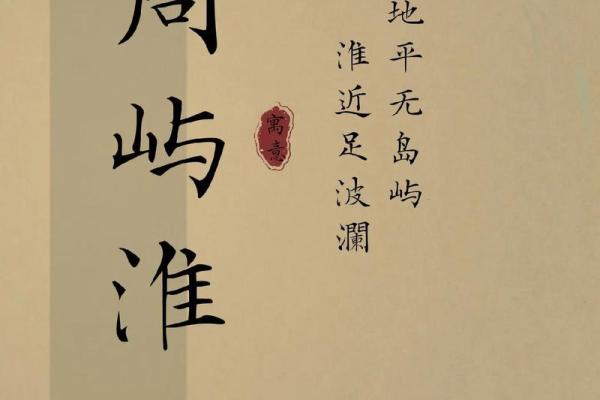 地平无岛屿
淮近足波瀾
寓意
周屿淮